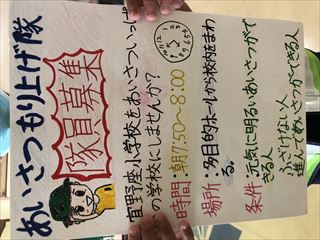 あいさつもり上げ隊
隊員募集
宜野座小学校をあいさついっぱい
の学校にしませんか?
時間:朝7:50~8:00
場所:多目的ホールから校内をまわ
る。
条件 元気に明るいあいさつがで
きる人
ふざけない人
進んであいさつができる人